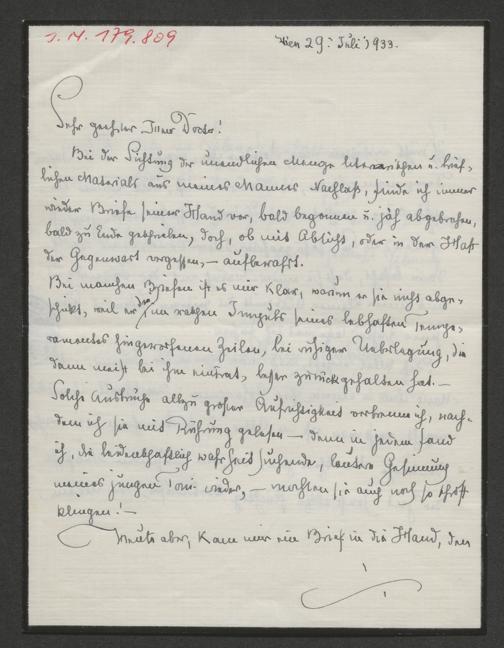 J. N. 179.809
Wien 29. Juli 1933.
Sehr geehrter Herr Doctor!
Bei der Sichtung der unendlichen Menge literarischen u. brief-
lichen Materials aus meines Mannes Nachlaß, finde ich immer
wieder Briefe seiner Hand vor, bald begonnen u. jäh abgebrochen,
bald zu Ende geschrieben, doch, ob mit Absicht, oder in der Hast
der Gegenwart vergessen, – aufbewahrt.
Bei manchen Briefen ist es mir klar, warum er sie nicht abge-
schickt, weil er die im raschen Impuls seines lebhaften Tempe-
ramentes hingeworfenen Zeilen, bei ruhiger Ueberlegung, die
dann meist bei ihm eintrat, besser zurückgehalten hat. –
Solche Ausbrüche allzu großer Aufrichtigkeit verbrenne ich, nach-
dem ich sie mit Rührung gelesen – denn in jedem fand
ich, die leidenschaftlich wahrheitsuchende, lautere Gesinnung
meines jungen Toni wieder, – mochten sie auch noch so schroff
klingen! –
Heute aber, kam mir ein Brief in die Hand, den